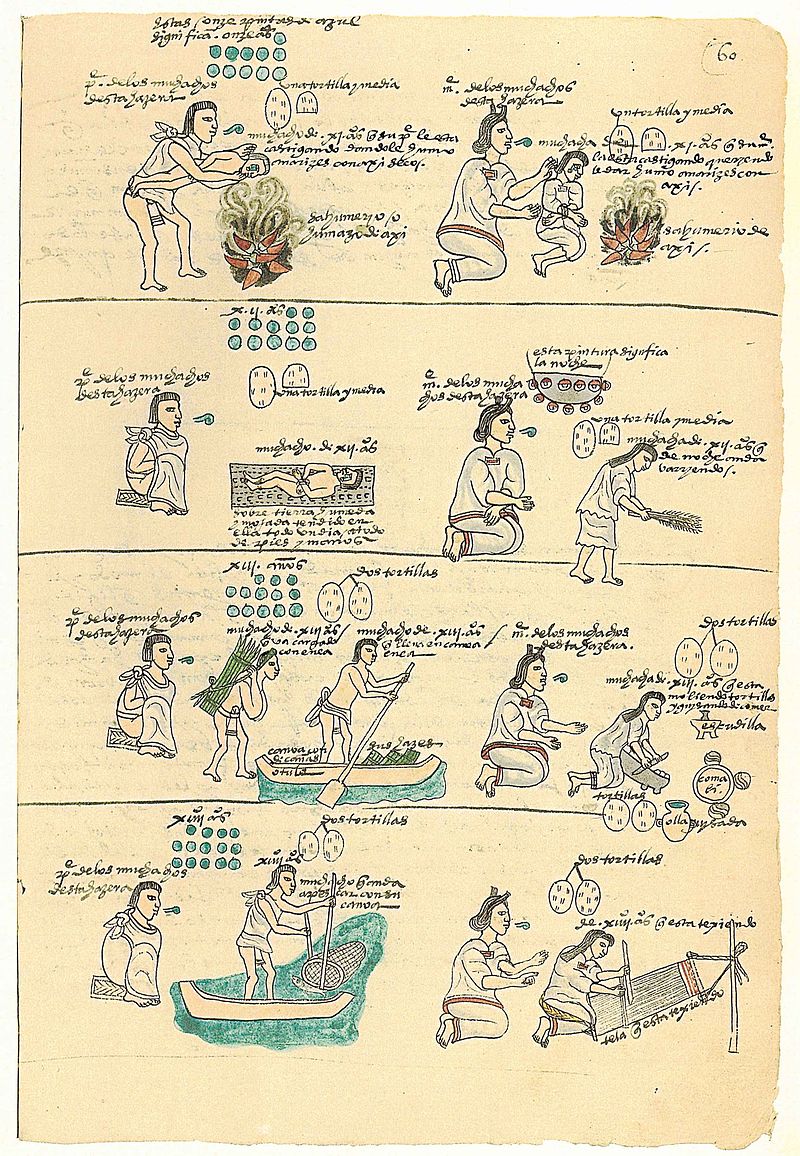 estas onze pintas de azul
significa. onze años
60
p. de los muchachos
desta hazera
una tortilla y media
muchacho de .xi. años q su p. le esta
castigando dandole humo
a narizes con axi secos.
sahumerio o
humazo de axi
m. de los muchachos
desta hazera
un tortilla y media
muchacha de .xi. años q su m.
la esta castigando queriendo
le dar humo a narizes con
axis.
sahumerio de
axis.
x.ii. años
p. de los muchachos
desta hazera
una tortilla y media
muchacho. de xii. años
sobre tierra humeda
y mojada tendido en
ella todo un dia atado
de pies y manos
esta pintura significa
la noche
m. de los mucha
chos desta hazera
una tortilla y media
muchacha de .xii. años q
de noche anda
varryendo.
xiii. años
dos tortillas
p. de los muchachos
desta hazera
muchacho de .xiii años
q va cargado
con enea
muchacho de .xiii. años
q lleva en canoa
enea
canoa con
de cañas
o tule
sus hazes
m. de los muchachos
desta hazera.
dos tortillas
muchacha de .xiii. años q esta
moliendo tortillas
y guisando de comer
escudilla
comal
tortillas
olla guisada
xiiii años
dos tortillas
p. de los muchachos
desta hazera
xiiii años
muchacho q anda
a pescar con su
canoa
dos tortillas
de .xiiii. años q esta texiendo
tela q esta texiendo